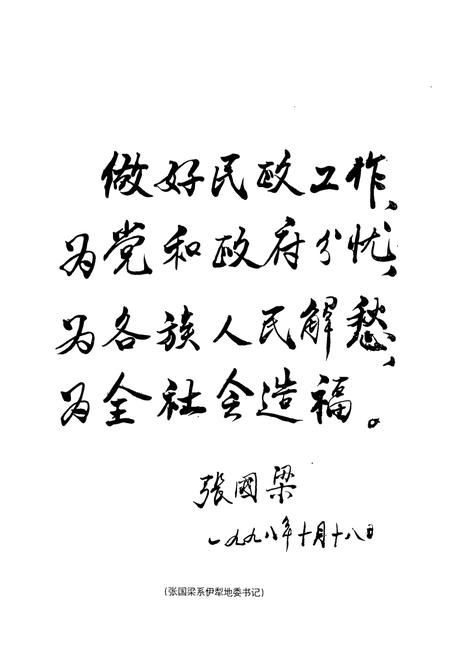 做好民政工作、
为党和政府分忧、
为各族人民解愁、
为全社会造福。
张國梁
一九九八年十月十八日
(张国梁系伊犁地委书记)